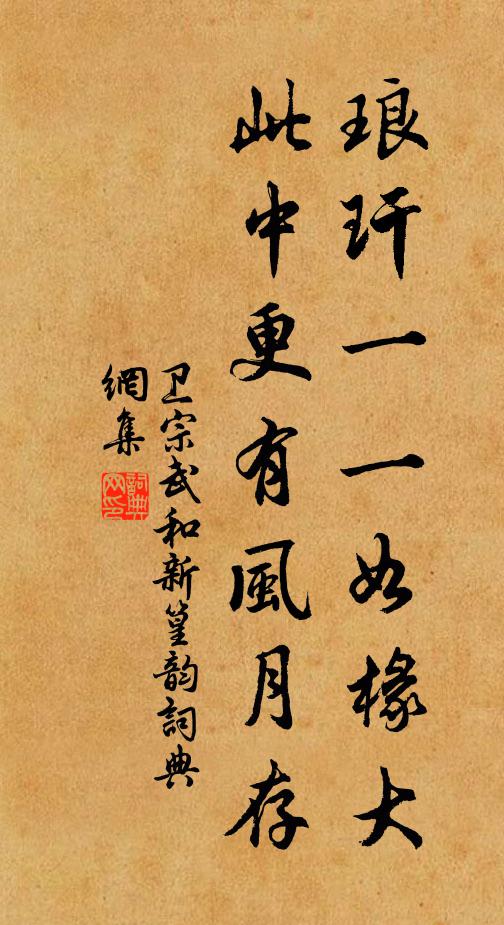 琅玕一一如椽大
此中更有風月存
卫宗武和新篁韵詞典
網集
詞典
网印